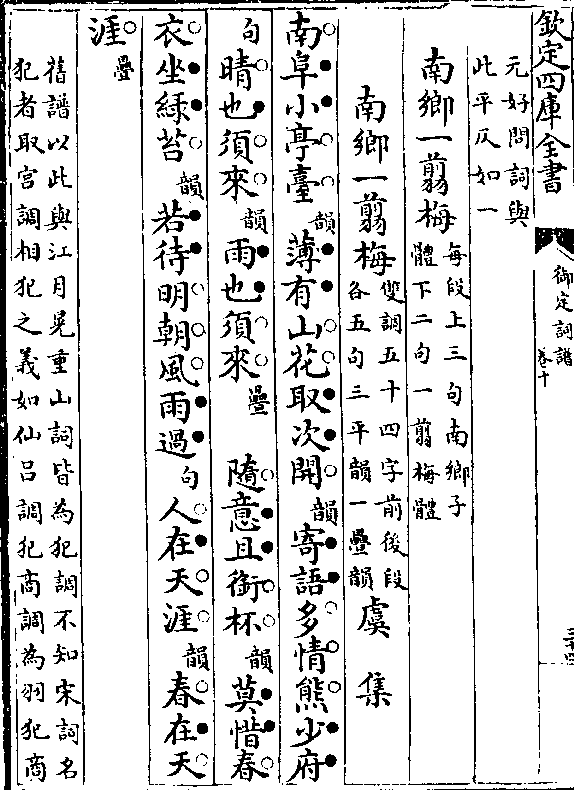 欽定四庫全書
御定詞譜
卷十
元好問詞與
此平仄如一
南鄉一翦梅
每段上三句南鄉子
體下二句一翦梅體
南鄉一翦梅
雙調五十四字前後段
各五句三平韻一疊韻
虞集
南阜小亭臺韻薄有山花取次開韻寄語多情熊少府
句晴也須來韻雨也須來疊 隨意且銜杯韻莫惜春
衣坐綠苔韻若待明朝風雨過句人在天涯韻春在天
涯疊
舊譜以此與江月晃重山詞皆為犯調不知宋詞名
犯者取宮調相犯之義如仙呂調犯商調為羽犯商